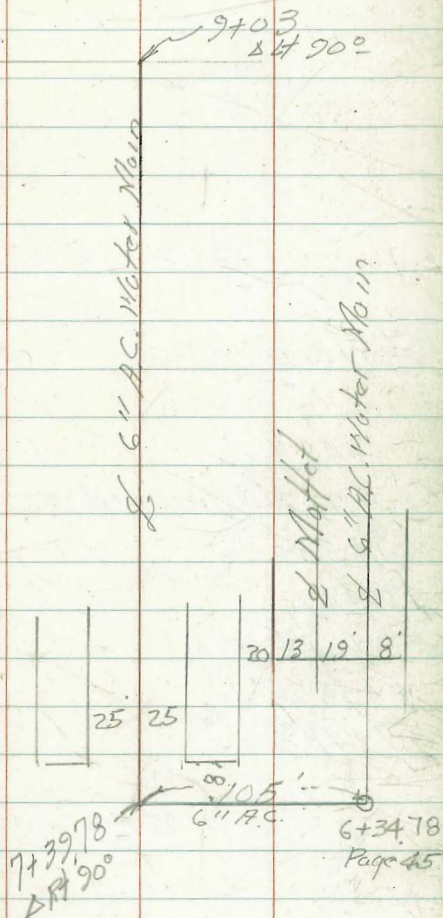 9+03
Δ Lt 90°
℄ 6" A.C. Water Main
℄ Moffet
℄ 6" A.C. Water Main
20 13 19' 8'
25' 25
8'
105'
6" A.C.
7+39.78
Δ Rt 90°
6+34.78
Page 45